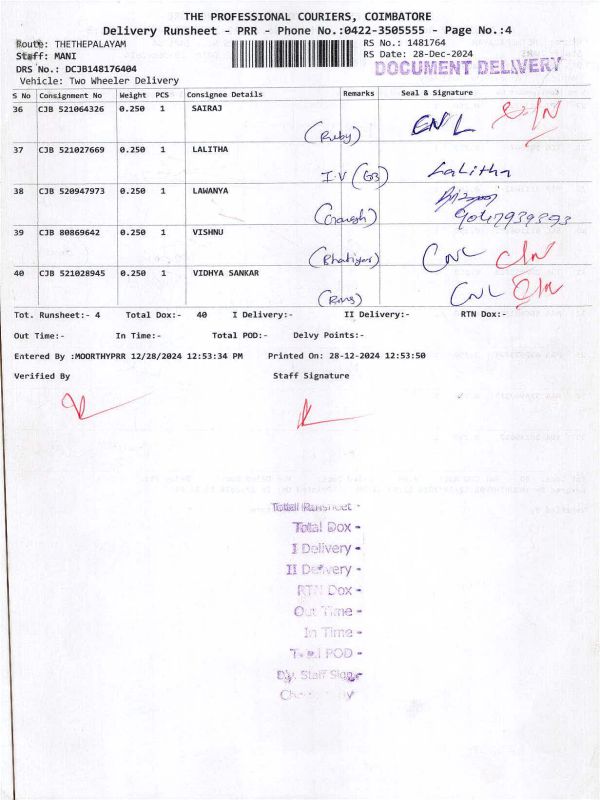 THE PROFESSIONAL COURIERS, COIMBATORE
Delivery Runsheet - PRR - Phone No.:0422-3505555 - Page No.:4
Route: THETHEPALAYAM RS No.: 1481764
Staff: MANI RS Date: 28-Dec-2024
DRS No.: DCJB148176404 DOCUMENT DELIVERY
Vehicle: Two Wheeler Delivery
S No Consignment No Weight PCS Consignee Details Remarks Seal & Signature
36 CJB 521064326 0.250 1 SAIRAJ
(Ruby) CNL
37 CJB 521027669 0.250 1 LALITHA
I.V (GB) Lalitha
38 CJB 520947973 0.250 1 LAWANYA
(Ganesh)
39 CJB 80869642 0.250 1 VISHNU
CNL
40 CJB 521028945 0.250 1 VIDHYA SANKAR
CNL
Tot. Runsheet:- 4 Total Dox:- 40 I Delivery:- II Delivery:- RTN Dox:-
Out Time:- In Time:- Total POD:- Delvy Points:-
Entered By :MOORTHYPRR 12/28/2024 12:53:34 PM Printed On: 28-12-2024 12:53:50
Verified By Staff Signature
Total Runsheet -
Total Dox -
I Delivery -
II Delivery -
RTN Dox -
Out Time -
In Time -
Total POD -
Dly. Staff Sign -